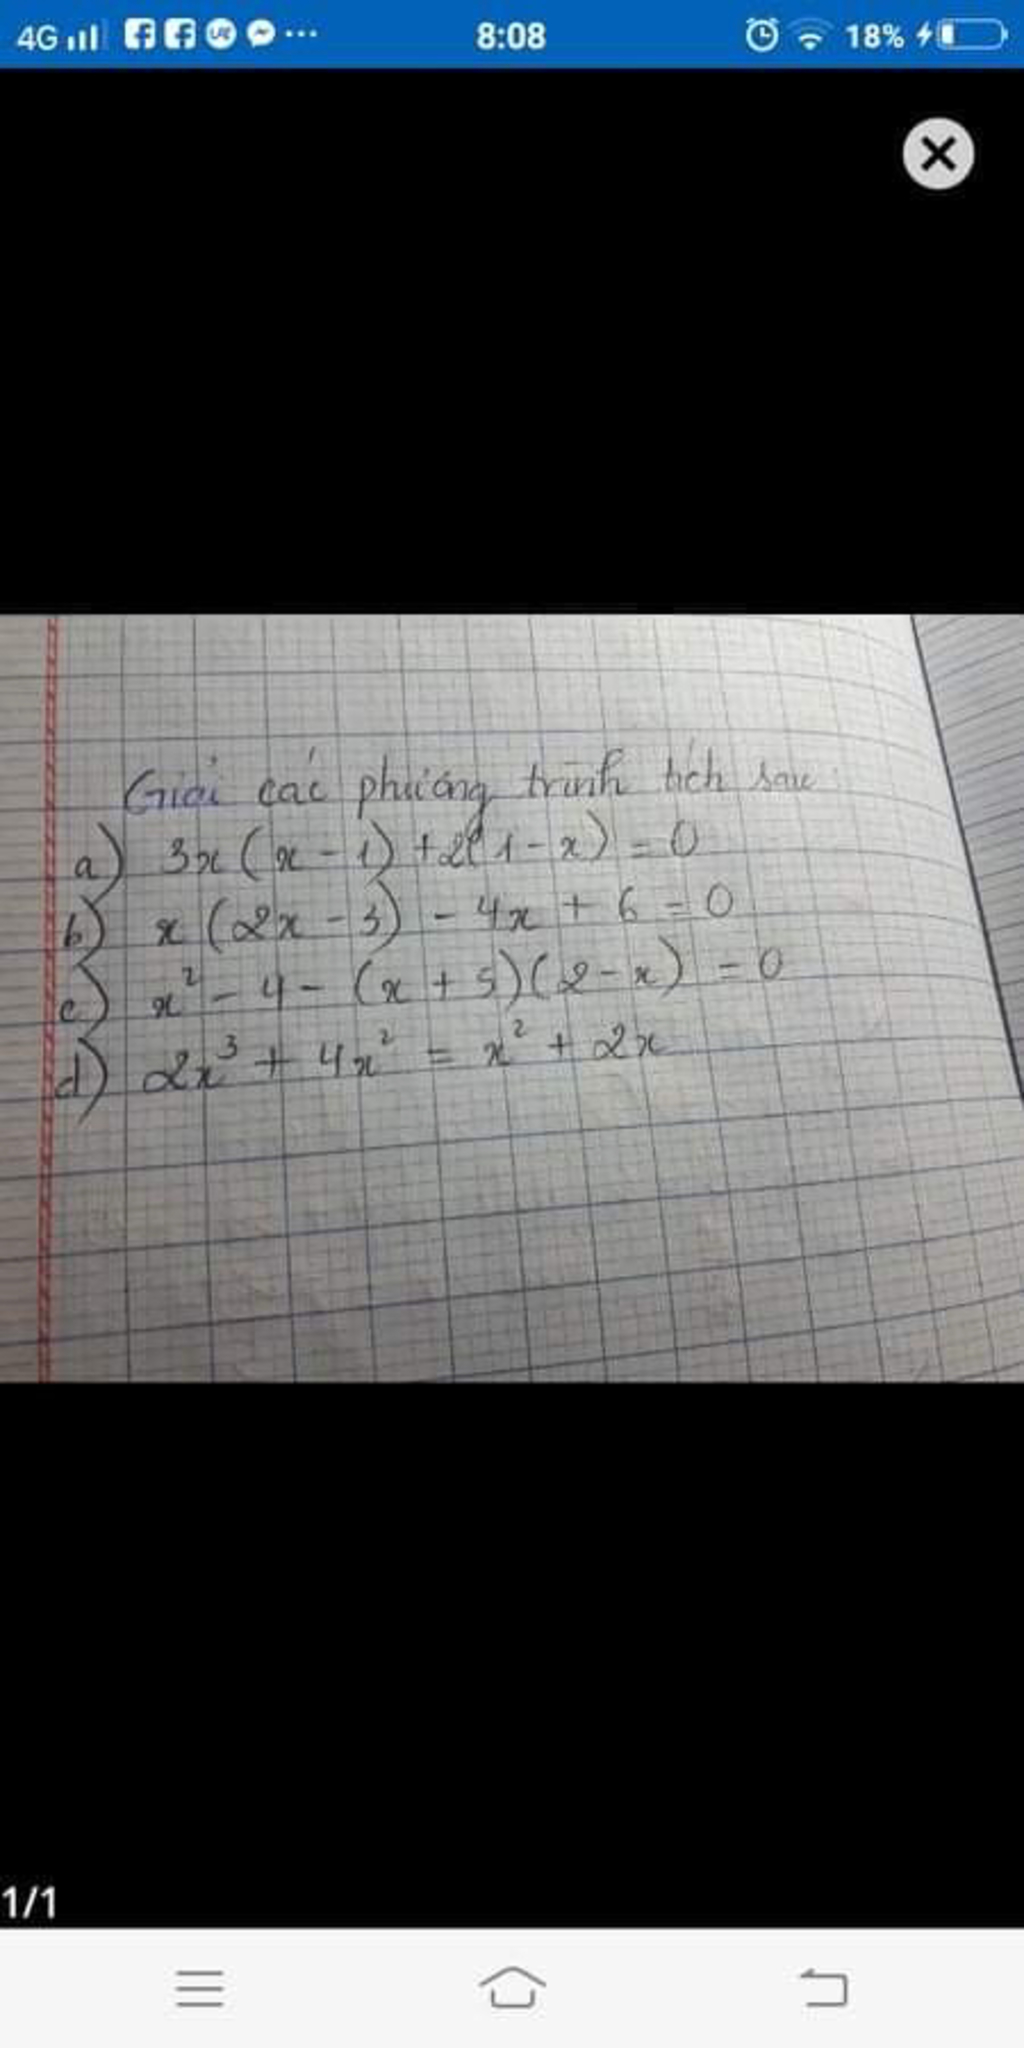 4G 8:08 18%
Giải các phương trình tích sau:
a) 3x(x - 1) + 2(1 - x) = 0
b) x(2x - 3) - 4x + 6 = 0
c) x² - 4 - (x + 5)(2 - x) = 0
d) 2x³ + 4x² = x² + 2x
1/1